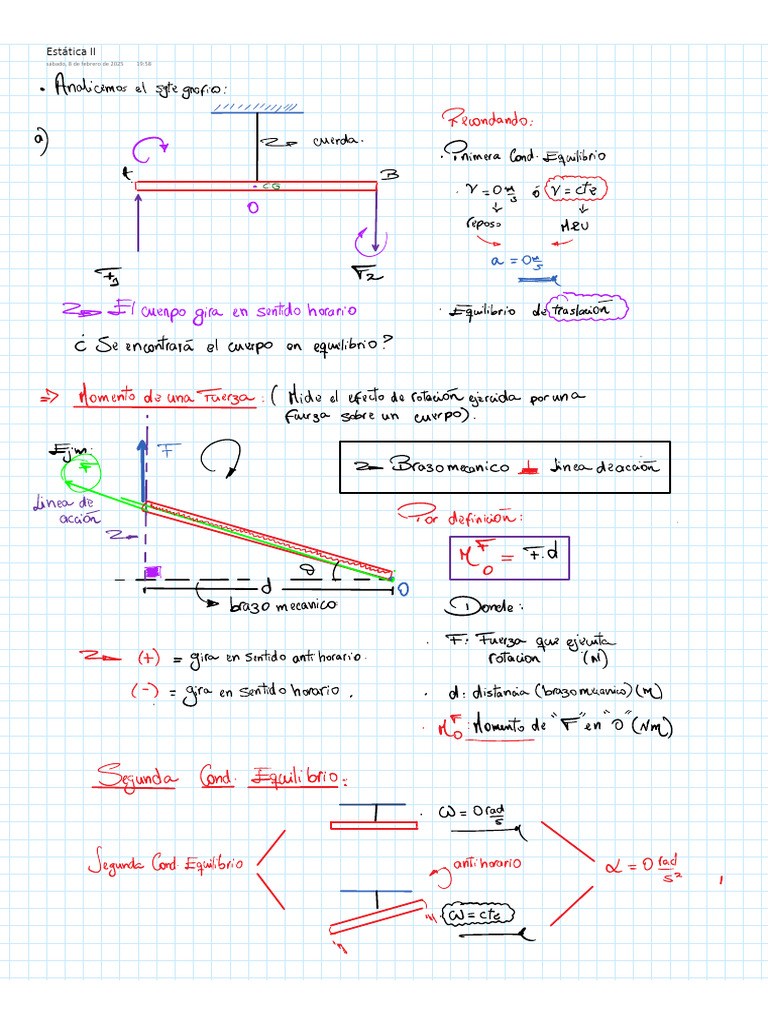 Estática II
sábado, 8 de febrero de 2025 19:58
• Analicemos el sgte grafico:
a)
cuerda.
A
B
CG
O
F1
F2
El cuerpo gira en sentido horario
¿ Se encontrará el cuerpo en equilibrio?
Recordando:
• Primera Cond. Equilibrio
• V = 0 m/s ó V = cte
reposo MRU
a = 0 m/s
• Equilibrio de traslación
=> Momento de una Fuerza: ( Mide el efecto de rotación ejercida por una
fuerza sobre un cuerpo).
Ejm:
F
F
Linea de
acción
θ
d
O
brazo mecanico
Brazo mecanico ⊥ linea de acción
Por definición:
M_O^F = F.d
Donde:
• F: Fuerza que ejecuta
rotacion (N)
• d: distancia (brazo mecanico) (m)
• M_O^F: Momento de "F" en "O" (Nm)
(+) = gira en sentido antihorario.
(-) = gira en sentido horario.
Segunda Cond. Equilibrio:
Segunda Cond. Equilibrio
• ω = 0 rad/s
antihorario
ω = cte
α = 0 rad/s²